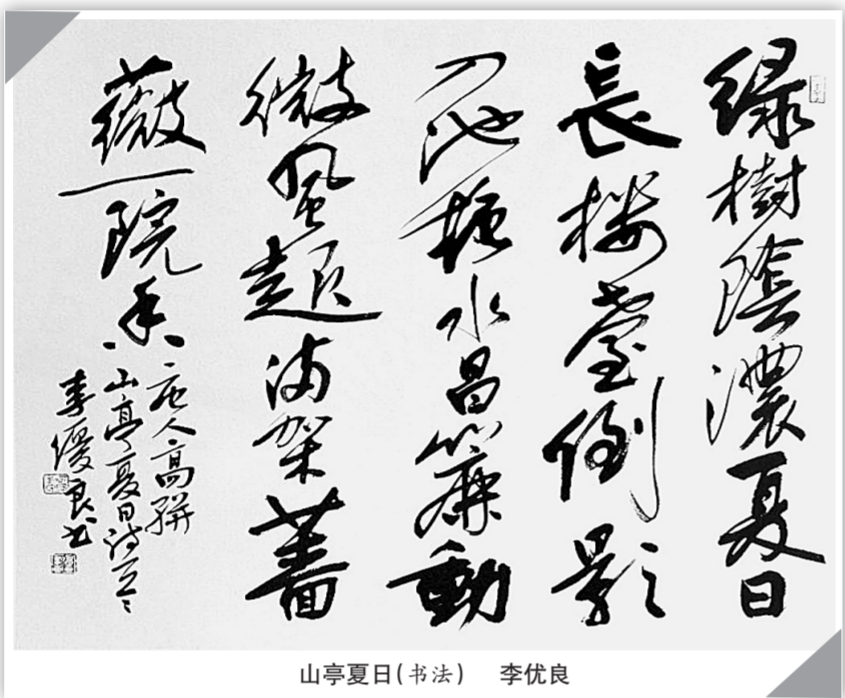 綠樹陰濃夏日
長樓臺倒影
入池塘水昌簾動
微風起滿架薔
薇一院香
唐人高駢
山亭夏日詩
李優良书
山亭夏日(书法) 李优良